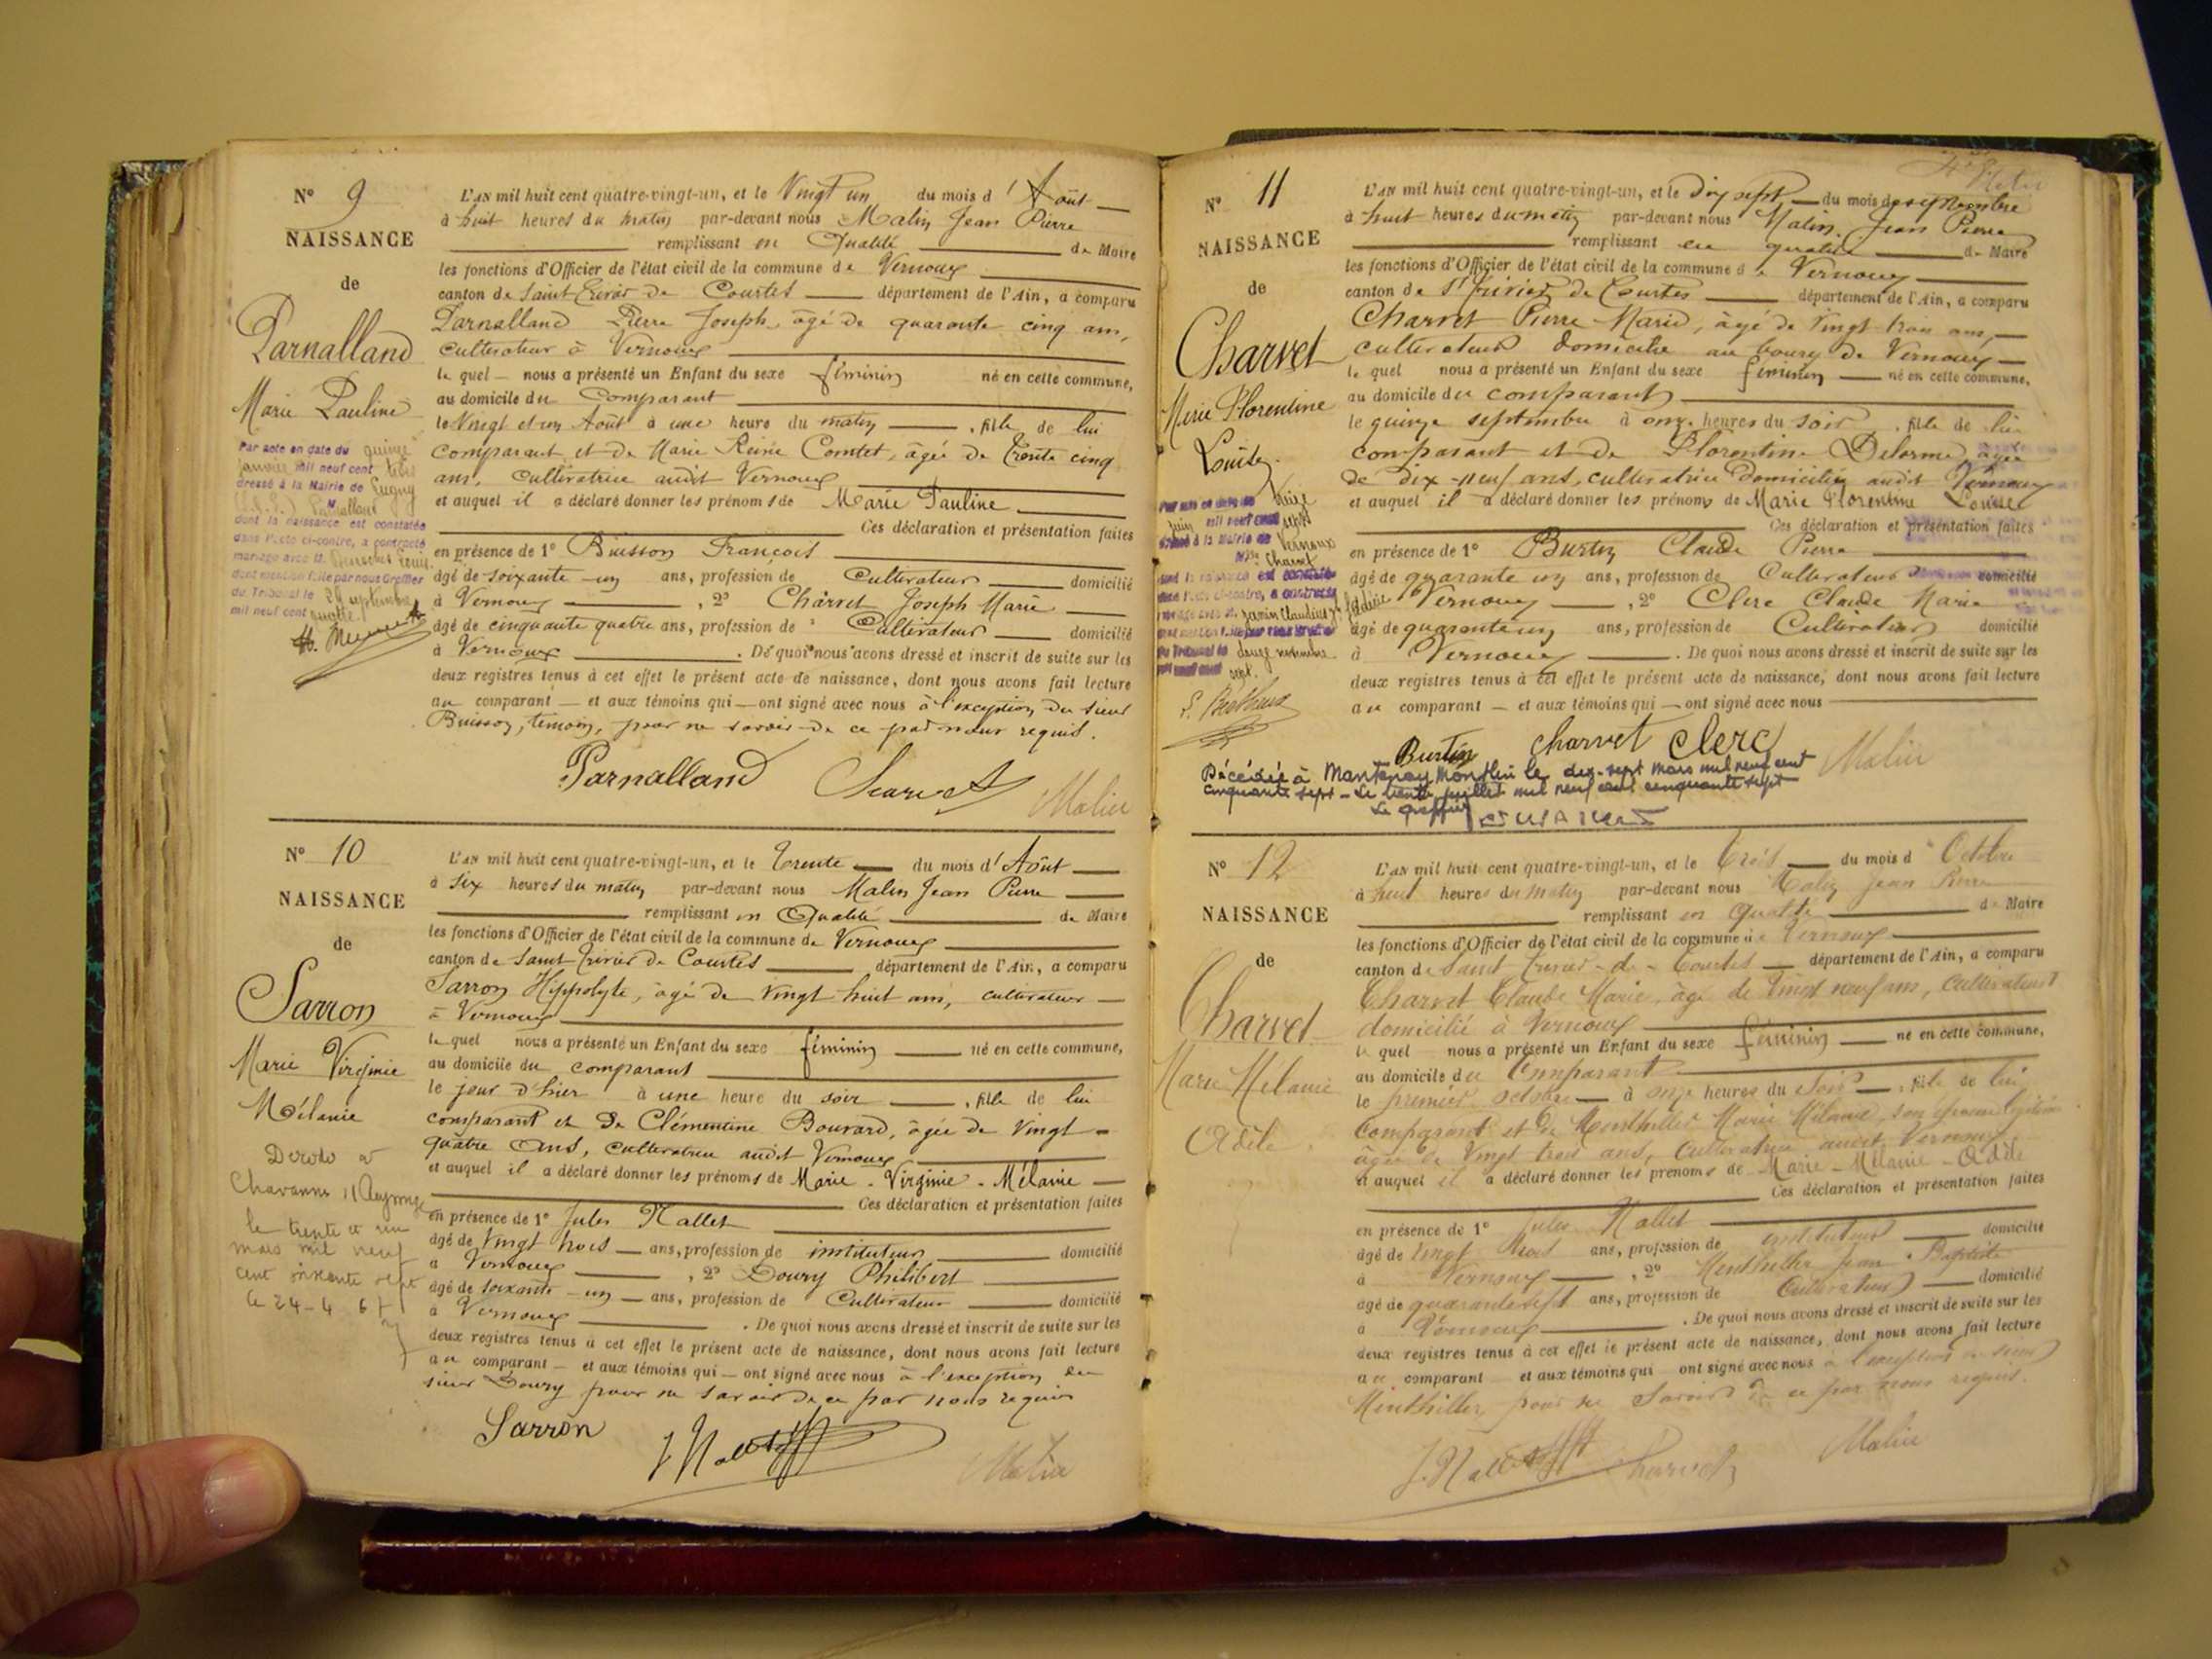 N° 9
NAISSANCE
de
Parnalland
Marie Pauline
Par acte en date du quinze
janvier mil neuf cent
dressé à la Mairie de Lugny
(S.&L.) Parnalland
dont la naissance est constatée
dans l'acte ci-contre, a contracté
mariage avec M. Louis
dont mention faite par nous Greffier
du Tribunal le 24 septembre
mil neuf cent quatre
L'AN mil huit cent quatre-vingt-un, et le Vingt un du mois d'Août
à huit heures du matin par-devant nous Malin Jean Pierre
remplissant en Qualité de Maire
les fonctions d'Officier de l'état civil de la commune de Vernoux
canton de Saint Trivier de Courtes département de l'Ain, a comparu
Parnalland Pierre Joseph, âgé de quarante cinq ans,
cultivateur à Vernoux
lequel nous a présenté un Enfant du sexe féminin né en cette commune,
au domicile du Comparant
le Vingt et un Août à une heure du matin, fille de lui
comparant et de Marie Reine Comtet, âgée de trente cinq
ans, cultivatrice audit Vernoux
et auquel il a déclaré donner les prénoms de Marie Pauline
Ces déclaration et présentation faites
en présence de 1° Buisson François
âgé de soixante-un ans, profession de Cultivateur domicilié
à Vernoux, 2° Charvet Joseph Marie
âgé de cinquante quatre ans, profession de Cultivateur domicilié
à Vernoux. De quoi nous avons dressé et inscrit de suite sur les
deux registres tenus à cet effet le présent acte de naissance, dont nous avons fait lecture
au comparant et aux témoins qui ont signé avec nous à l'exception du sieur
Buisson, témoin, pour ne savoir de ce par nous requis.
Parnalland Charvet Malin
N° 10
NAISSANCE
de
Sarron
Marie Virginie
Mélanie
Décédée à
Chavannes s/ Reyssouze
le trente et un
mars mil neuf
cent soixante sept
le 24-4 67
L'AN mil huit cent quatre-vingt-un, et le trente du mois d'Août
à six heures du matin par-devant nous Malin Jean Pierre
remplissant en Qualité de Maire
les fonctions d'Officier de l'état civil de la commune de Vernoux
canton de Saint Trivier de Courtes département de l'Ain, a comparu
Sarron Hippolyte, âgé de vingt huit ans, cultivateur
à Vernoux
lequel nous a présenté un Enfant du sexe féminin né en cette commune,
au domicile du comparant
le jour d'hier à une heure du soir, fille de lui
comparant et de Clémentine Bouvard, âgée de vingt-
quatre ans, cultivatrice audit Vernoux
et auquel il a déclaré donner les prénoms de Marie - Virginie - Mélanie
Ces déclaration et présentation faites
en présence de 1° Jules Nallet
âgé de vingt trois ans, profession de instituteur domicilié
à Vernoux, 2° Doury Philibert
âgé de soixante-un ans, profession de Cultivateur domicilié
à Vernoux. De quoi nous avons dressé et inscrit de suite sur les
deux registres tenus à cet effet le présent acte de naissance, dont nous avons fait lecture
au comparant et aux témoins qui ont signé avec nous à l'exception du
sieur Doury pour ne savoir de ce par nous requis
Sarron J Nallet Malin
N° 11
NAISSANCE
de
Charvet
Marie Florentine
Louise
Par acte en date du treize
juin mil neuf cent sept
dressé à la Mairie de Vernoux
Mlle Charvet
dont la naissance est constatée
dans l'acte ci-contre, a contracté
mariage avec M. Janin Claudius
dont mention faite par nous Greffier
du Tribunal le douze novembre
mil neuf cent sept.
L'AN mil huit cent quatre-vingt-un, et le dix sept du mois de septembre
à huit heures du matin par-devant nous Malin Jean Pierre
remplissant en qualité de Maire
les fonctions d'Officier de l'état civil de la commune de Vernoux
canton de St Trivier de Courtes département de l'Ain, a comparu
Charvet Pierre Marie, âgé de vingt trois ans,
cultivateur domicilié au bourg de Vernoux
lequel nous a présenté un Enfant du sexe féminin né en cette commune,
au domicile du comparant
le quinze septembre à onze heures du soir, fille de lui
comparant et de Florentine Delorme, âgée
de dix-neuf ans, cultivatrice domiciliée audit Vernoux
et auquel il a déclaré donner les prénoms de Marie Florentine Louise
Ces déclaration et présentation faites
en présence de 1° Burtin Claude Pierre
âgé de quarante un ans, profession de Cultivateur domicilié
Vernoux, 2° Clerc Claude Marie
âgé de quarante un ans, profession de Cultivateur domicilié
à Vernoux. De quoi nous avons dressé et inscrit de suite sur les
deux registres tenus à cet effet le présent acte de naissance, dont nous avons fait lecture
au comparant et aux témoins qui ont signé avec nous
Burtin Charvet Clerc Malin
Décédée à Mantenay Montlin le dix-sept mars mil neuf cent
cinquante sept - Le trente juillet mil neuf cent cinquante sept
Le greffier
N° 12
NAISSANCE
de
Charvet
Marie Mélanie
Adèle
L'AN mil huit cent quatre-vingt-un, et le trois du mois d'Octobre
à huit heures du matin par-devant nous Malin Jean Pierre
remplissant en qualité de Maire
les fonctions d'Officier de l'état civil de la commune de Vernoux
canton de Saint Trivier-de-Courtes département de l'Ain, a comparu
Charvet Claude Marie, âgé de vingt neuf ans, cultivateur
domicilié à Vernoux
lequel nous a présenté un Enfant du sexe féminin né en cette commune,
au domicile du Comparant
le premier octobre à onze heures du soir, fille de lui
Comparant et de Monthiller Marie Mélanie, son épouse légitime
âgée de vingt trois ans, cultivatrice audit Vernoux
et auquel il a déclaré donner les prénoms de Marie - Mélanie - Adèle
Ces déclaration et présentation faites
en présence de 1° Jules Nallet
âgé de vingt trois ans, profession de instituteur domicilié
à Vernoux, 2° Monthiller Jean Baptiste
âgé de quarante sept ans, profession de Cultivateur domicilié
à Vernoux. De quoi nous avons dressé et inscrit de suite sur les
deux registres tenus à cet effet le présent acte de naissance, dont nous avons fait lecture
au comparant et aux témoins qui ont signé avec nous à l'exception du sieur
Monthiller pour ne savoir de ce par nous requis.
J. Nallet Charvet Malin